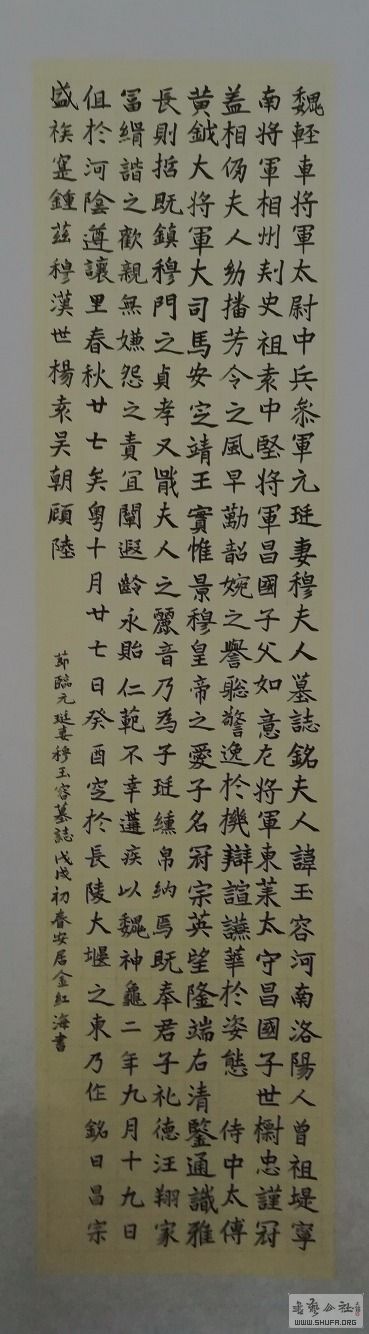 魏輕車將軍太尉中兵叅軍元珽妻穆夫人墓誌銘夫人諱玉容河南洛陽人曾祖堤寧
南將軍相州刾史祖袁中堅將軍昌國子父如意左將軍東莱太守昌國子世櫥忠謹冠
盖相仍夫人幼播芳令之風早勤韶婉之譽聡警逸於機辯諠讌華於姿態 侍中太傅
黄鉞大將軍大司馬安定靖王實惟景穆皇帝之愛子名冠宗英望隆端右清鑒通識雅
長則哲既鎮穆門之貞孝又戢夫人之麗音乃為子珽纁帛納焉既奉君子礼德汪翔家
冨縎諧之歡親無嫌怨之責宜闡遐齡永貽仁範不幸遘疾以魏神龜二年九月十九日
徂於河陰遵讓里春秋廿七矣粤十月廿七日癸酉空於長陵大堰之東乃作銘曰昌宗
盛族寔鍾茲穆漢世楊袁吴朝顧陸
節臨元珽妻穆玉容墓誌戊戌初春安居金紅海書
書藝公社
WWW.SHUFA.ORG